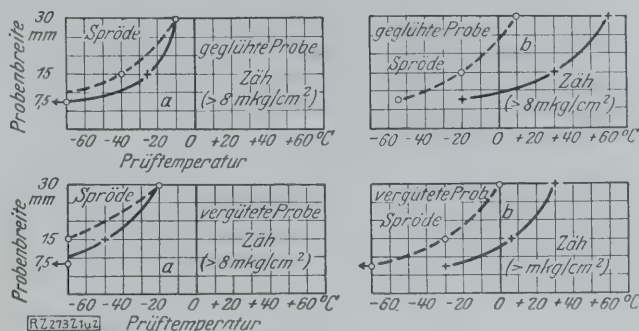 Probenbreite
30
mm
15
7,5
Spröde
geglühte Probe
Zäh
(> 8 mkg/cm²)
a
-60 -40 -20 0 +20 +40 +60°C
Prüftemperatur
geglühte Probe
b
Spröde
Zäh
(> 8 mkg/cm²)
-60 -40 -20 0 +20 +40 +60°C
Probenbreite
30
mm
15
7,5
Spröde
vergütete Probe
Zäh
(> 8 mkg/cm²)
a
-60 -40 -20 0 +20 +40 +60°C
Prüftemperatur
vergütete Probe
b
Spröde
Zäh
(> mkg/cm²)
-60 -40 -20 0 +20 +40 +60°C
RZ27321u2